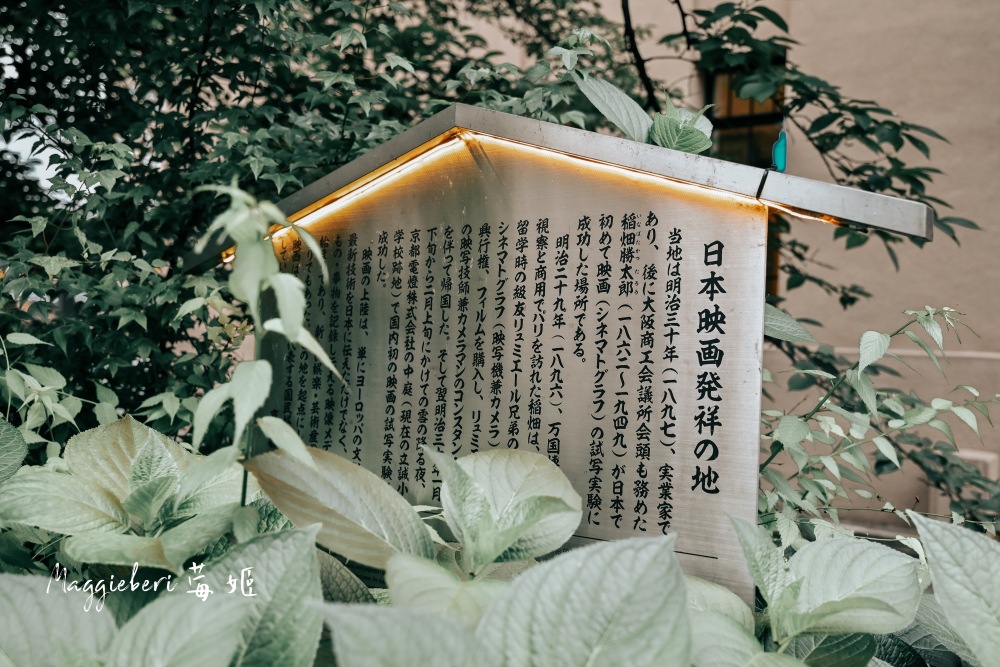 日本映画発祥の地
当地は明治三十年（一八九七）、実業家で
あり、後に大阪商工会議所会頭も務めた
稲畑勝太郎（一八六二～一九四九）が日本で
いなばたかつたろう
初めて映画（シネマトグラフ）の試写実験に
成功した場所である。
明治二十九年（一八九六）、万国
視察と商用でパリを訪れた稲畑は、
留学時の級友リュミエール兄弟の
シネマトグラフ（映写機兼カメラ）
興行権、フィルムを購入し、リュミ
の映写技師兼カメラマンのコンスタン
を伴って帰国した。そして翌明治三十年一月
下旬から二月上旬にかけての雪の降る夜、
京都電燈株式会社の中庭（現在の立誠小
学校跡地）で国内初の映画の試写実験
成功した。
映画の上陸は、単にヨーロッパの
最新技術を日本に伝えただけでなく、
Maggieberi 莓姬